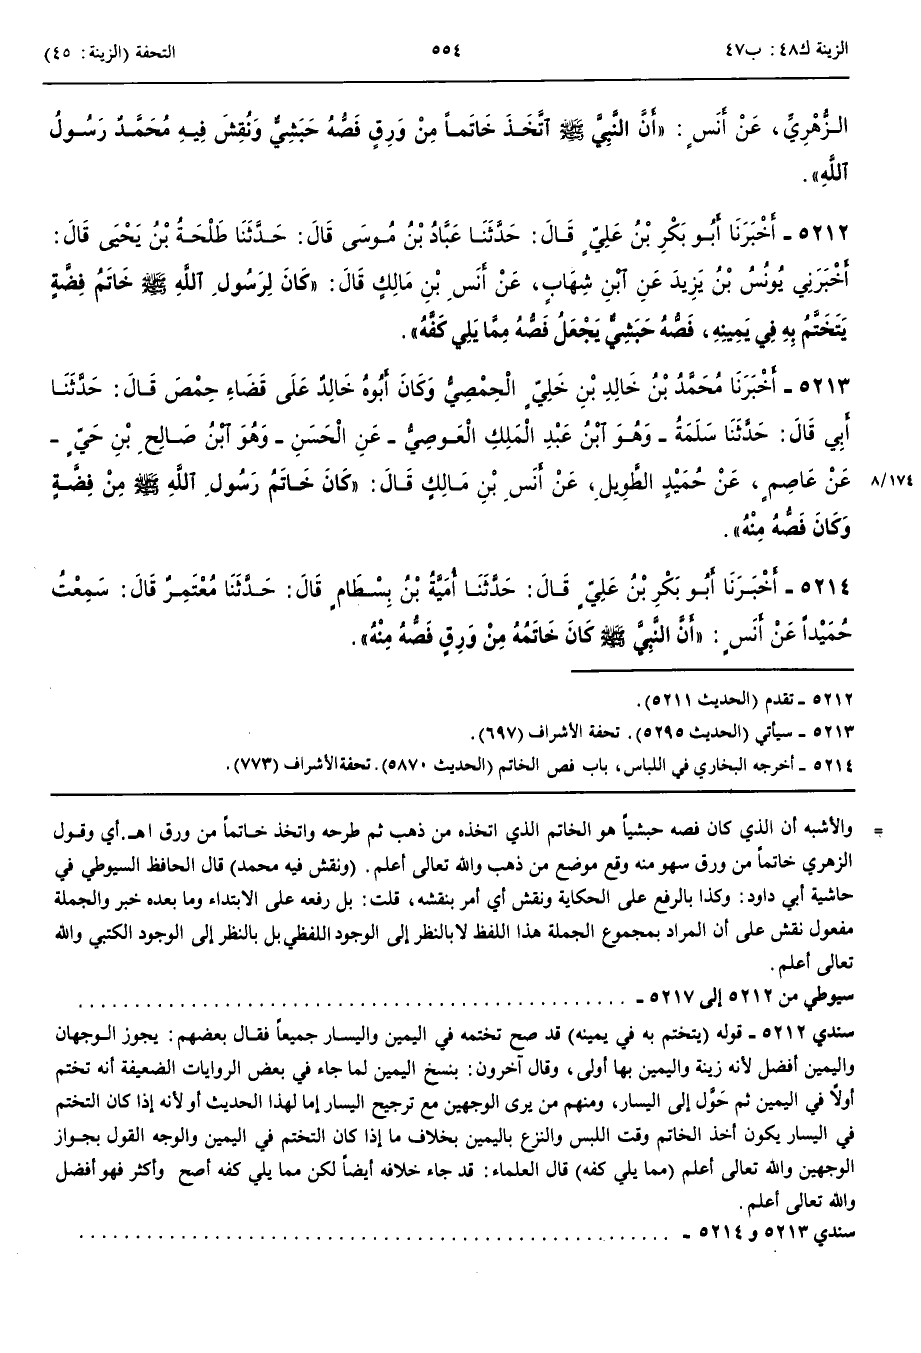 الزينة ك٤٨: ب٤٧ ٥٥٤ التحفة (الزينة: ٤٥)
الزُّهْرِيِّ، عَنْ أَنَسٍ: «أَنَّ النَّبِيَّ ﷺ ٱتَّخَذَ خَاتَماً مِنْ وَرِقٍ فَصُّهُ حَبَشِيٌّ وَنُقِشَ فِيهِ مُحَمَّدٌ رَسُولُ
ٱللَّهِ».
٥٢١٢ ـ أَخْبَرَنَا أَبُو بَكْرِ بْنُ عَلِيٍّ قَالَ: حَدَّثَنَا عَبَّادُ بْنُ مُوسَى قَالَ: حَدَّثَنَا طَلْحَةُ بْنُ يَحْيَى قَالَ:
أَخْبَرَنِي يُونُسُ بْنُ يَزِيدَ عَنِ ٱبْنِ شِهَابٍ، عَنْ أَنَسِ بْنِ مَالِكٍ قَالَ: «كَانَ لِرَسُولِ ٱللَّهِ ﷺ خَاتَمُ فِضَّةٍ
يَتَخَتَّمُ بِهِ فِي يَمِينِهِ، فَصُّهُ حَبَشِيٌّ يَجْعَلُ فَصَّهُ مِمَّا يَلِي كَفَّهُ».
٥٢١٣ ـ أَخْبَرَنَا مُحَمَّدُ بْنُ خَالِدِ بْنِ خَلِيٍّ الْحِمْصِيُّ وَكَانَ أَبُوهُ خَالِدٌ عَلَى قَضَاءِ حِمْصَ قَالَ: حَدَّثَنَا
أَبِي قَالَ: حَدَّثَنَا سَلَمَةُ ـ وَهُوَ ٱبْنُ عَبْدِ الْمَلِكِ الْعَوصِيُّ ـ عَنِ الْحَسَنِ ـ وَهُوَ ٱبْنُ صَالِحِ بْنِ حَيٍّ ـ
عَنْ عَاصِمٍ، عَنْ حُمَيْدٍ الطَّوِيلِ، عَنْ أَنَسِ بْنِ مَالِكٍ قَالَ: «كَانَ خَاتَمُ رَسُولِ ٱللَّهِ ﷺ مِنْ فِضَّةٍ ٨/١٧٤
وَكَانَ فَصُّهُ مِنْهُ».
٥٢١٤ ـ أَخْبَرَنَا أَبُو بَكْرِ بْنُ عَلِيٍّ قَالَ: حَدَّثَنَا أُمَيَّةُ بْنُ بِسْطَامٍ قَالَ: حَدَّثَنَا مُعْتَمِرٌ قَالَ: سَمِعْتُ
حُمَيْداً عَنْ أَنَسٍ: «أَنَّ النَّبِيَّ ﷺ كَانَ خَاتَمُهُ مِنْ وَرِقٍ فَصُّهُ مِنْهُ».
٥٢١٢ ـ تقدم (الحديث ٥٢١١).
٥٢١٣ ـ سيأتي (الحديث ٥٢٩٥). تحفة الأشراف (٦٩٧).
٥٢١٤ ـ أخرجه البخاري في اللباس، باب فص الخاتم (الحديث ٥٨٧٠). تحفة الأشراف (٧٧٣).
= والأشبه أن الذي كان فصه حبشياً هو الخاتم الذي اتخذه من ذهب ثم طرحه واتخذ خاتماً من ورق اهـ. أي وقول
الزهري خاتماً من ورق سهو منه وقع موضع من ذهب والله تعالى أعلم. (ونقش فيه محمد) قال الحافظ السيوطي في
حاشية أبي داود: وكذا بالرفع على الحكاية ونقش أي أمر بنقشه، قلت: بل رفعه على الابتداء وما بعده خبر والجملة
مفعول نقش على أن المراد بمجموع الجملة هذا اللفظ لا بالنظر إلى الوجود اللفظي بل بالنظر إلى الوجود الكتبي والله
تعالى أعلم.
سيوطي من ٥٢١٢ إلى ٥٢١٧ ـ . . . . . . . . . . . . . . . . . . . . . . . . . . . . . .
سندي ٥٢١٢ ـ قوله (يتختم به في يمينه) قد صح تختمه في اليمين واليسار جميعاً فقال بعضهم: يجوز الوجهان
واليمين أفضل لأنه زينة واليمين بها أولى، وقال آخرون: بنسخ اليمين لما جاء في بعض الروايات الضعيفة أنه تختم
أولاً في اليمين ثم حَوَّل إلى اليسار، ومنهم من يرى الوجهين مع ترجيح اليسار إما لهذا الحديث أو لأنه إذا كان التختم
في اليسار يكون أخذ الخاتم وقت اللبس والنزع باليمين بخلاف ما إذا كان التختم في اليمين والوجه القول بجواز
الوجهين والله تعالى أعلم (مما يلي كفه) قال العلماء: قد جاء خلافه أيضاً لكن مما يلي كفه أصح وأكثر فهو أفضل
والله تعالى أعلم.
سندي ٥٢١٣ و ٥٢١٤ ـ . . . . . . . . . . . . . . . . . . . . . . . . . . . . . .